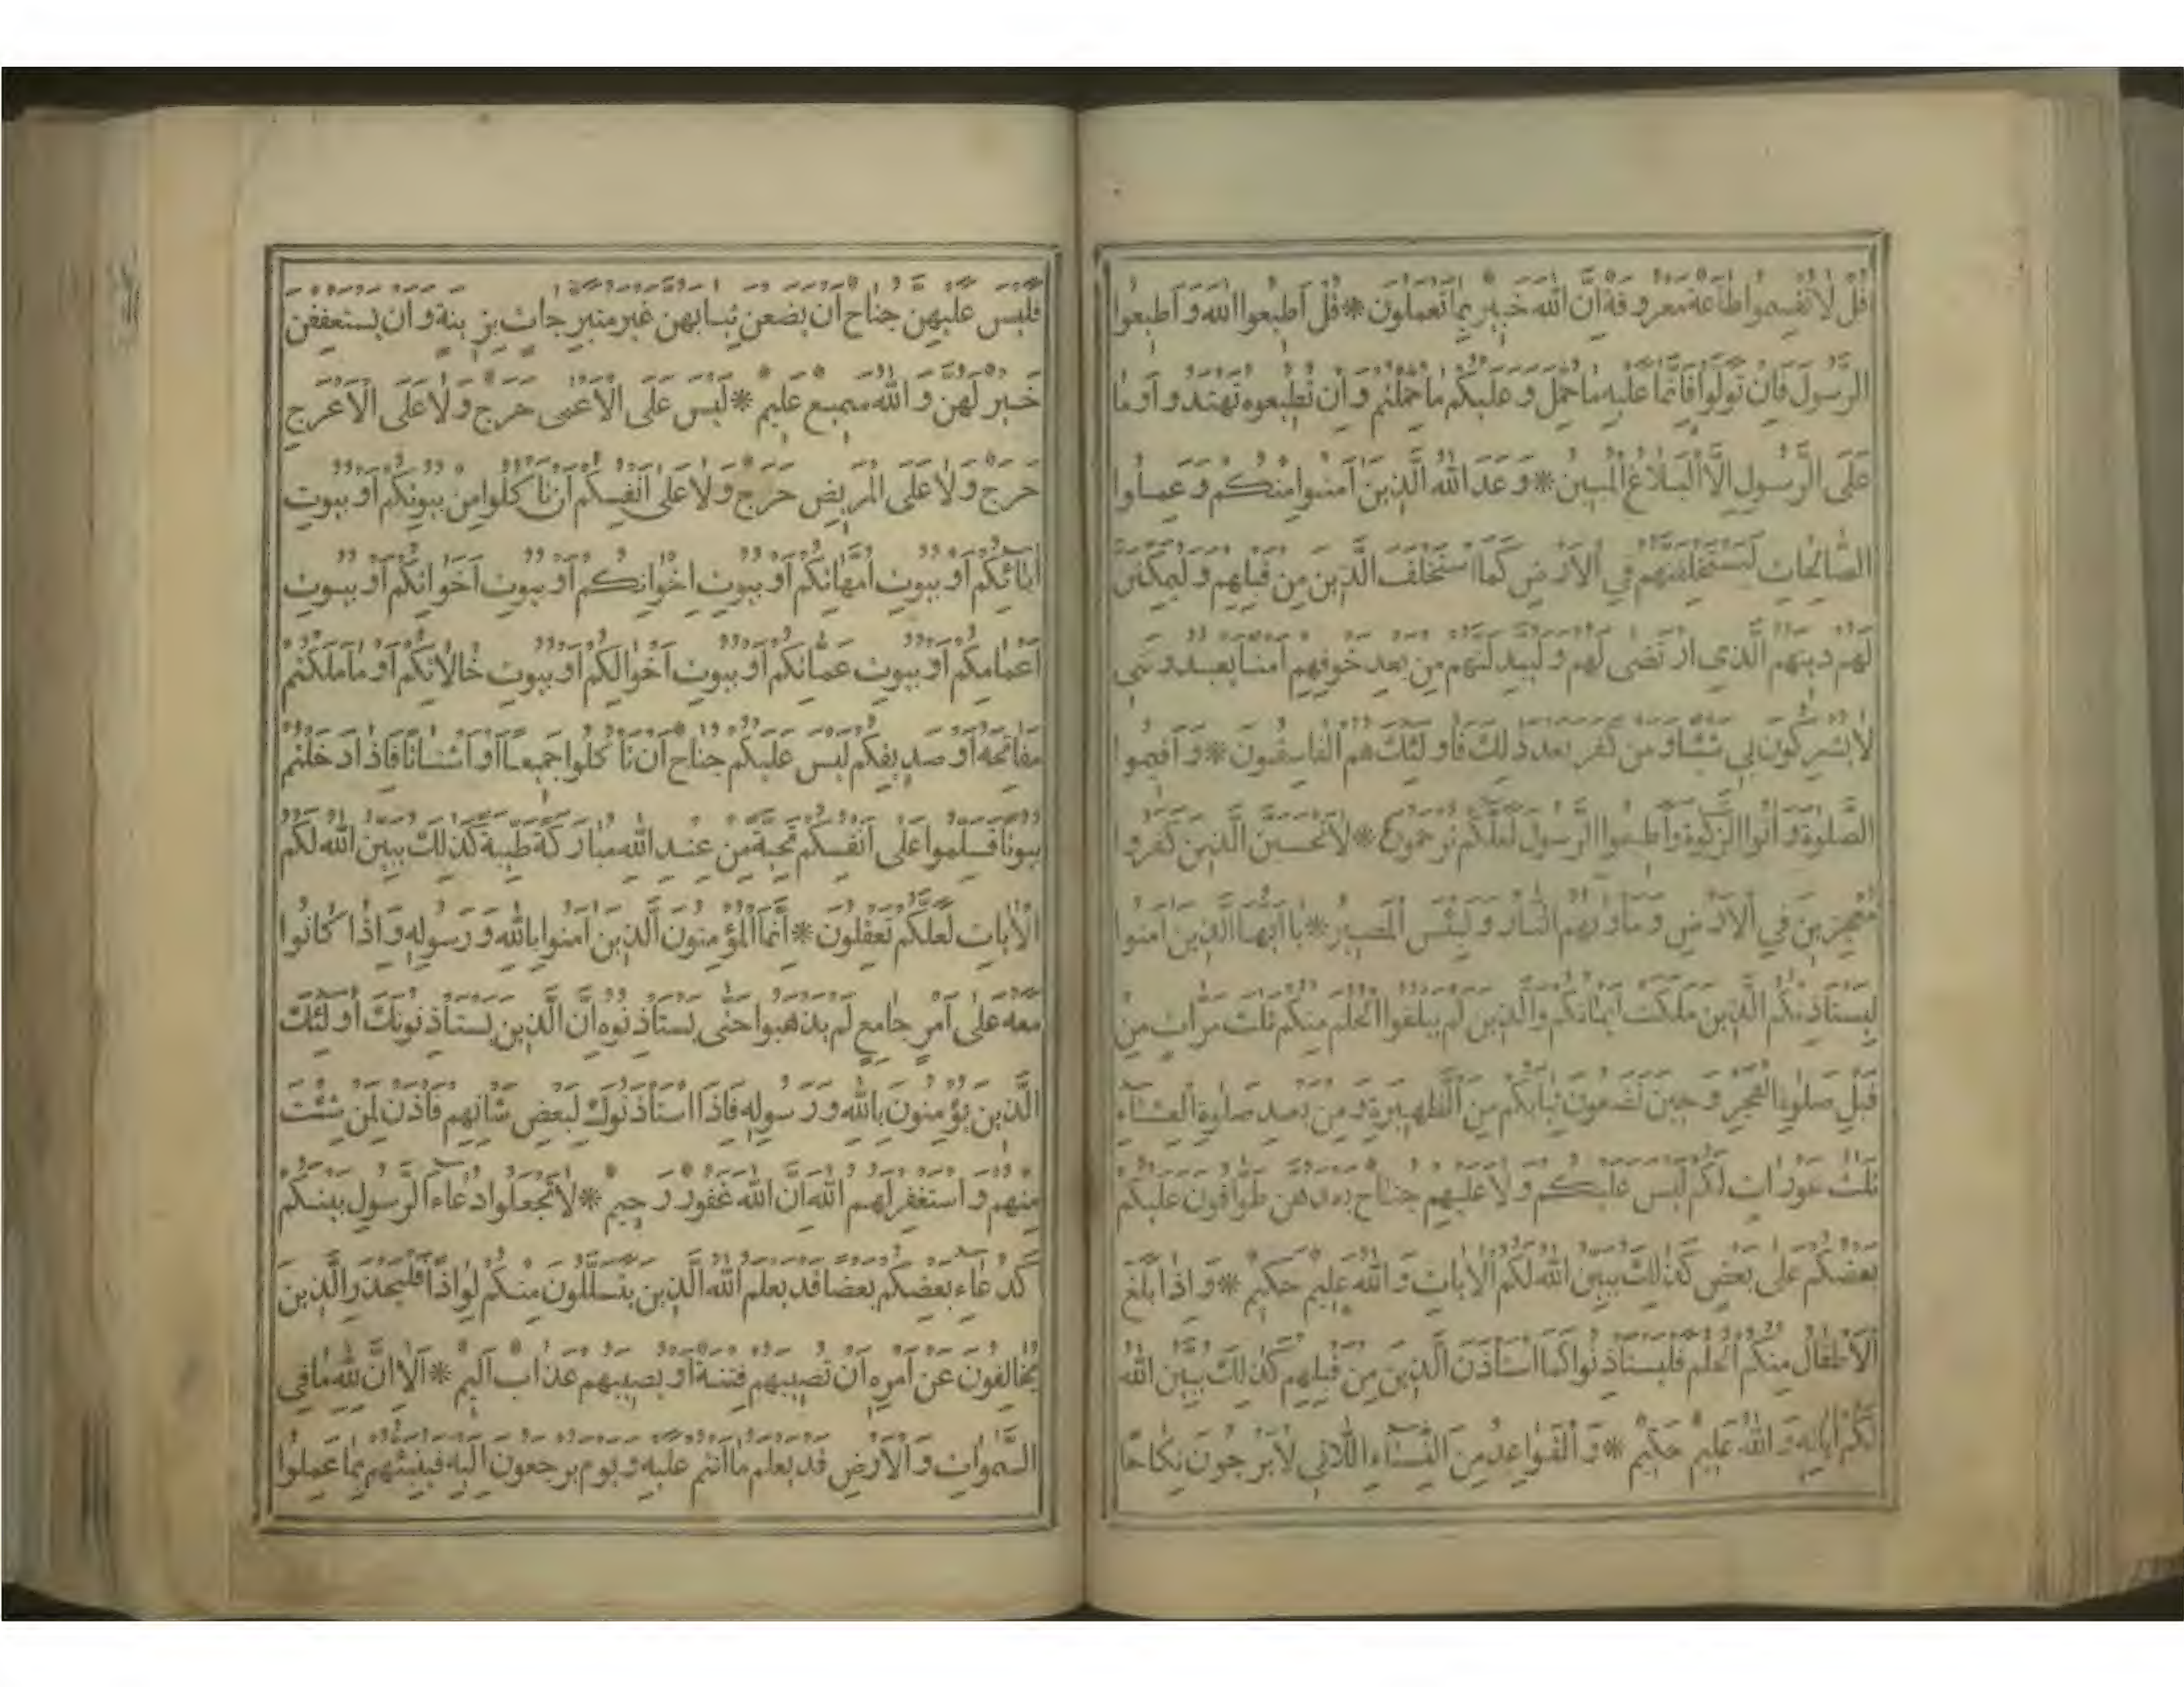 قل لا تقسموا طاعة معروفة ان الله خبير بما تعملون * قل اطيعوا الله و اطيعوا
الرسول فان تولوا فانما عليه ما حمل و عليكم ما حملتم و ان تطيعوه تهتدوا وما
على الرسول الا البلاغ المبين * وعد الله الذين امنوا منكم وعملوا
الصالحات ليستخلفنهم في الارض كما استخلف الذين من قبلهم وليمكنن
لهم دينهم الذي ارتضى لهم وليبدلنهم من بعد خوفهم امنا يعبدونني
لا يشركون بي شيئا ومن كفر بعد ذلك فاولئك هم الفاسقون * و اقيموا
الصلوة و اتوا الزكوة واطيعوا الرسول لعلكم ترحمون * لا تحسبن الذين كفروا
معجزين في الارض وماويهم النار و لبئس المصير * يا ايها الذين امنوا
ليستاذنكم الذين ملكت ايمانكم والذين لم يبلغوا الحلم منكم ثلث مرات من
قبل صلوة الفجر وحين تضعون ثيابكم من الظهيرة ومن بعد صلوة العشاء
ثلث عورات لكم ليس عليكم ولا عليهم جناح بعدهن طوافون عليكم
بعضكم على بعض كذلك يبين الله لكم الايات والله عليم حكيم * و اذا بلغ
الاطفال منكم الحلم فليستاذنوا كما استاذن الذين من قبلهم كذلك يبين الله
لكم اياته والله عليم حكيم * و القواعد من النساء اللاتي لا يرجون نكاحا
فليس عليهن جناح ان يضعن ثيابهن غير متبرجات بزينة وان يستعففن
خير لهن والله سميع عليم * ليس على الاعمى حرج ولا على الاعرج
حرج ولا على المريض حرج ولا على انفسكم ان تاكلوا من بيوتكم او بيوت
ابائكم او بيوت امهاتكم او بيوت اخوانكم او بيوت اخواتكم او بيوت
اعمامكم او بيوت عماتكم او بيوت اخوالكم او بيوت خالاتكم او ما ملكتم
مفاتحه او صديقكم ليس عليكم جناح ان تاكلوا جميعا او اشتاتا فاذا دخلتم
بيوتا فسلموا على انفسكم تحية من عند الله مباركة طيبة كذلك يبين الله لكم
الايات لعلكم تعقلون * انما المؤمنون الذين امنوا بالله ورسوله و اذا كانوا
معه على امر جامع لم يذهبوا حتى يستاذنوه ان الذين يستاذنونك اولئك
الذين يؤمنون بالله ورسوله فاذا استاذنوك لبعض شانهم فاذن لمن شئت
منهم و استغفر لهم الله ان الله غفور رحيم * لا تجعلوا دعاء الرسول بينكم
كدعاء بعضكم بعضا قد يعلم الله الذين يتسللون منكم لواذا فليحذر الذين
يخالفون عن امره ان تصيبهم فتنة او يصيبهم عذاب اليم * الا ان لله ما في
السموات و الارض قد يعلم ما انتم عليه ويوم يرجعون اليه فينبئهم بما عملوا